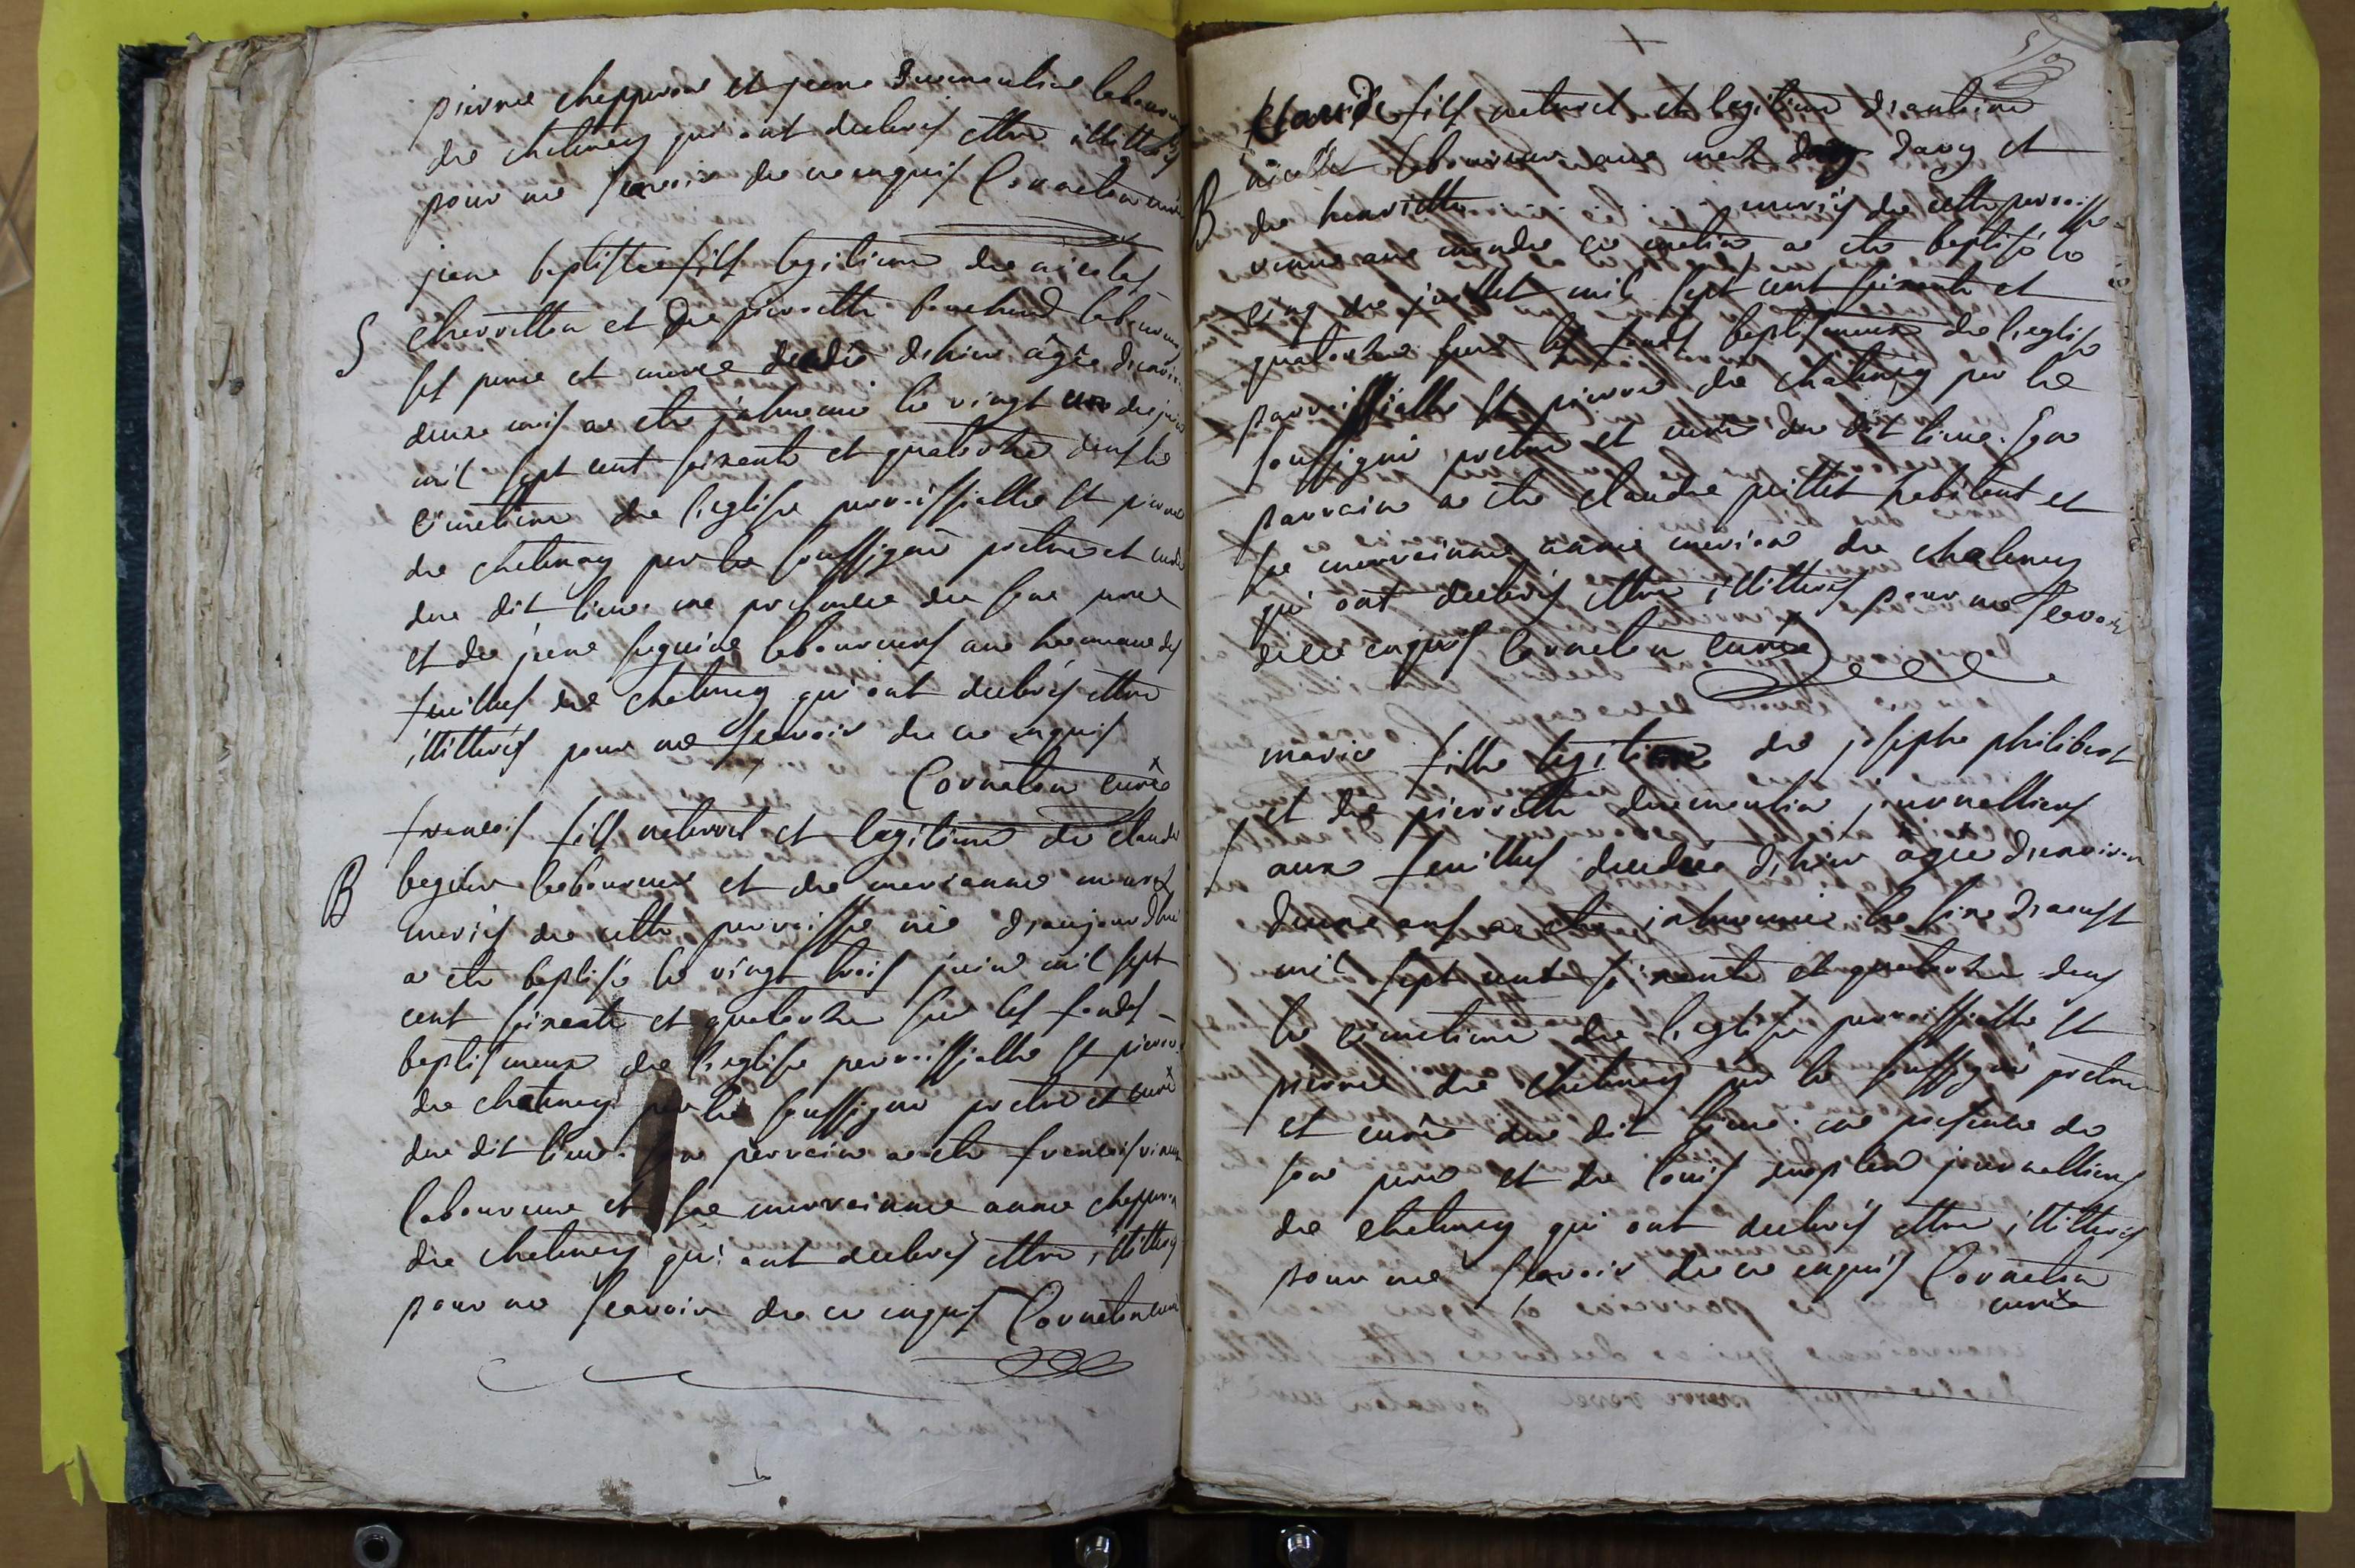 pierre chapperon et jeane Dumoulin laboureur
de chatenay qui ont declarés ettre illitterés
pour ne scavoir de ce enquis Corneton curé
jean baptiste fils legitime de nicolas
S
chevretton et de pierrette bouchard laboureur
st pierre et decedé d'hier âgée d'environ
deux mois a ete inhumé le vingt un de juin
mil sept cent soixante et quatorze dans le
cimetiere de l'eglise parroissialle st pierre
de chatenay par le soussigné prêtre et curé
du dit lieu. en présence de son pere
et de jeane seguin laboureurs au hameau des
fuilles de chatenay qui ont declarés ettre
illitterés pour ne scavoir de ce enquis
Corneton curé
francois fils naturel et legitime de claude
B
laboureur et de marianne
mariés de cette parroisse né d'aujourdhui
a ete baptisé le vingt trois juin mil sept
cent soixante et quatorze sur les fonds
baptismaux de l'eglise parroissialle st pierre
de chatenay par le soussigné prêtre et curé
du dit lieu. son parrain a ete francois
laboureur et sa marrainne anne chapperon
de chatenay qui ont declarés ettre illitterés
pour ne scavoir de ce enquis Corneton curé
Claude fils naturel et legitime d'antoine
laboureur au davy et
B
de henriette mariés de cette parroisse
venue au monde ce matin a ete baptisé le
cinq de juillet mil sept cent soixante et
quatorze sur les fonds baptismaux de l'eglise
parroissialle st pierre de chatenay par le
soussigné prêtre et curé du dit lieu. son
parrain a ete claude habitant et
sa marrainne anne de chatenay
qui ont declarés ettre illitterés pour ne scavoir
de ce enquis Corneton curé
marie fille legitime de josephe philibert
et de pierrette dumoulin journalliers
S
aux fuilles decedée d'hier âgée d'environ
deux ans a ete inhumé le six d'aoust
mil sept cent soixante et quatorze dans
le cimetiere de l'eglise parroissialle st
pierre de chatenay par le soussigné prêtre
et curé du dit lieu. en présence de
son pere et de louis journalliers
de chatenay qui ont declarés ettre illitterés
pour ne scavoir de ce enquis Corneton
curé